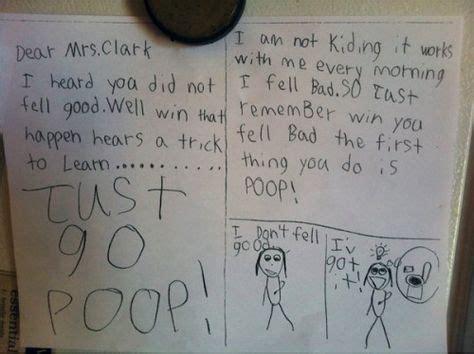 Dear Mrs.Clark
I heard you did not
fell good.Well win that
happen hears a trick
to Learn............
JUST
go
POOP!
I am not Kiding it works
with me every morning
I fell Bad.SO Just
remember win you
fell Bad the first
thing you do is
POOP!
I Don't fell
good.
I'v
got
it!
essential